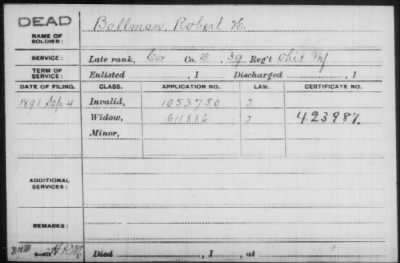 DEAD
NAME OF SOLDIER: Bollman, Robert H.
SERVICE: Late rank, Cor Co. D, 39 Reg't Ohio Inf
TERM OF SERVICE: Enlisted , 1 Discharged , 1
DATE OF FILING. CLASS. APPLICATION NO. LAW. CERTIFICATE NO.
1891 Sep 4 Invalid, 1053750 J
Widow, 611886 J 423987.
Minor,
ADDITIONAL SERVICES:
REMARKS:
Died , 1 , at